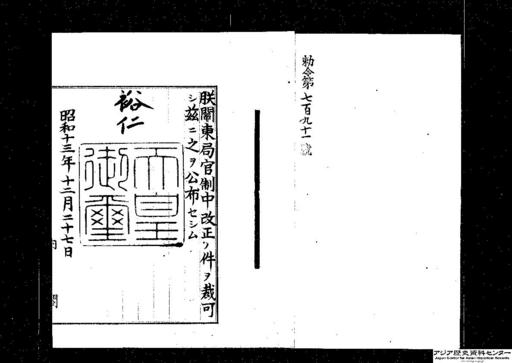 勅令第七百九十一號
朕關東局官制中改正ノ件ヲ裁可
シ茲ニ之ヲ公布セシム
裕仁
天皇
御璽
昭和十三年十二月二十七日
内閣
アジア歴史資料センター
Japan Center for Asian Historical Records